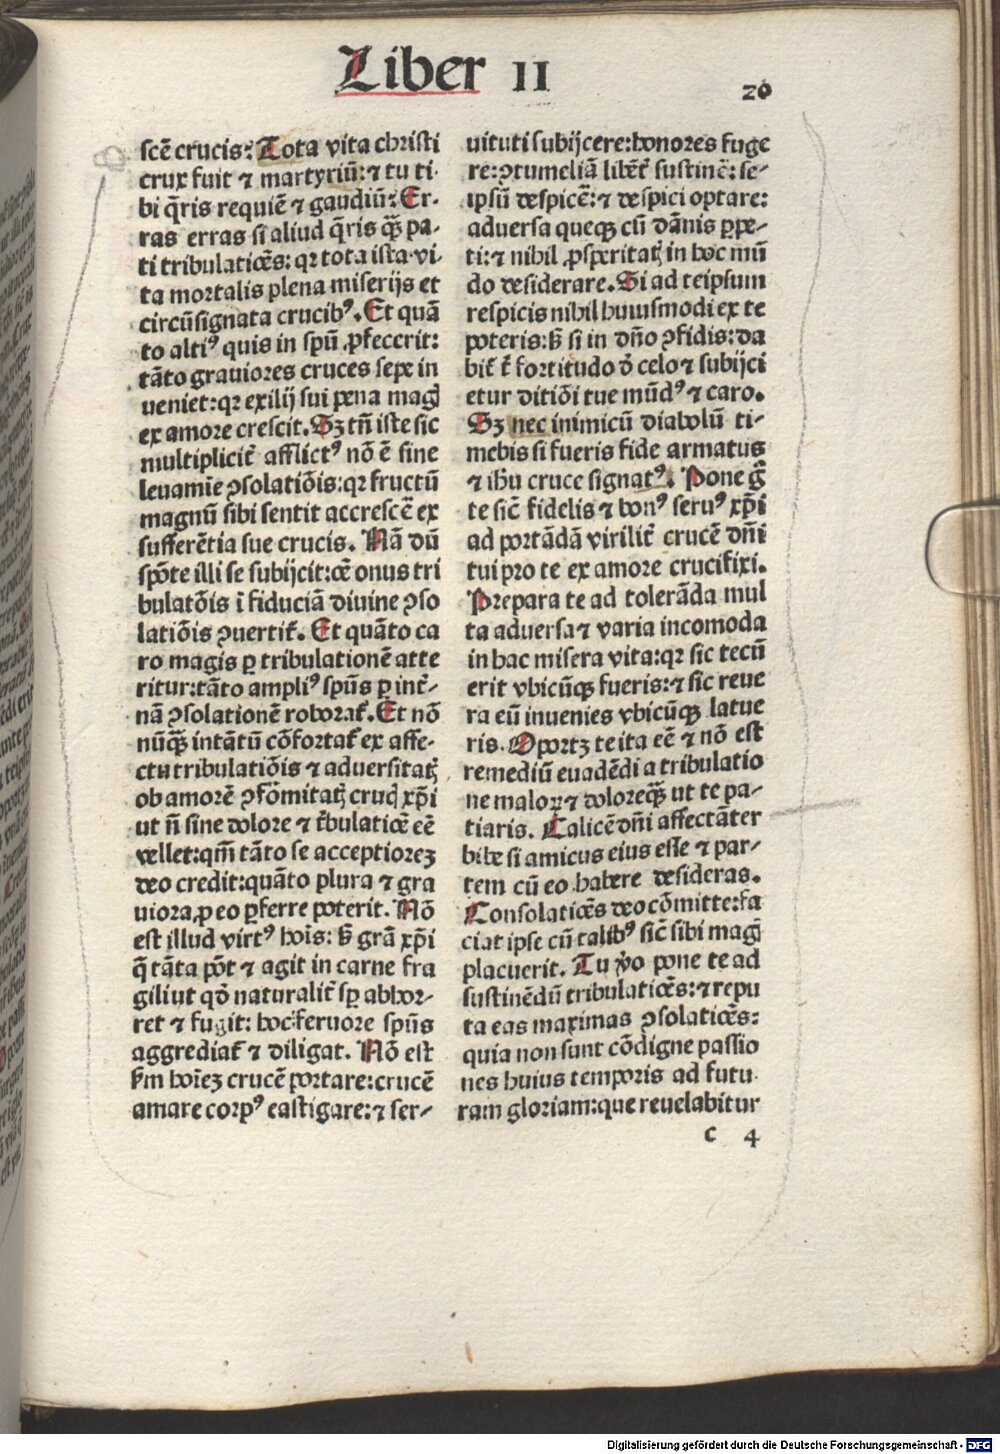 Liber II
20
scē crucis: Tota vita christi
crux fuit ⁊ martyriū: ⁊ tu ti-
bi q̄ris requiē ⁊ gaudiū: Er-
ras erras si aliud q̄ris qȝ̄ pa-
ti tribulatiōes: qꝛ tota ista vi-
ta mortalis plena miserijs et
circūsignata crucibꝰ. Et quā
to altiꝰ quis in spū ꝓfecerit:
tāto grauiores cruces sepe in
ueniet: qꝛ exilij sui pena magꝭ
ex amore crescit. Sꝫ tn̄ iste sic
multiplicit̄ afflictꝰ nō ē sine
leuamīe ꝯsolatiōis: qꝛ fructū
magnū sibi sentit accrescē ex
sufferētia sue crucis. Nā dū
spōte illi se subijcit: oē onus tri
bulatōis ī fiduciā diuine ꝯso
latiōis ꝯuertit᷑. Et quāto ca
ro magis ꝑ tribulationē atte
ritur: tāto ampliꝰ spūs ꝑ int̄-
nā ꝯsolationē roborat᷑. Et nō
nūqȝ̄ intātū cōfortat᷑ ex affe-
ctu tribulatiōis ⁊ aduersitatꝭ
ob amorē ꝯfōmitatꝭ crucꝭ xp̄i
ut n̄ sine dolore ⁊ t̄bulatiōe eē
vellet: qm̄ tāto se acceptioreꝫ
deo credit: quāto plura ⁊ gra
uiora ꝓ eo ꝑferre poterit. Nō
est illud virtꝰ hoīs: sꝫ grā xp̄i
q̄ tāta pōt ⁊ agit in carne fra
gili ut qd̄ naturalit̄ sꝑ abhor-
ret ⁊ fugit: hoc feruore spūs
aggrediat᷑ ⁊ diligat. Nō est
ẜm hoīeꝫ crucē portare: crucē
amare corpꝰ castigare: ⁊ ser-
uituti subijcere: honores fuge
re: ꝯtumeliā libēt᷑ sustinē: se-
ipsū despicē: ⁊ despici optare:
aduersa queqꝫ cū dānis ꝑpe-
ti: ⁊ nihil ꝓsperitatꝭ in hoc mū
do desiderare. Si ad teipsum
respicis nihil huiusmodi ex te
poteris: sꝫ si in dn̄o ꝯfidis: da
bit᷑ t̄ fortitudo d̄ celo ⁊ subijci
etur ditiōi tue mūdꝰ ⁊ caro.
Sꝫ nec inimicū diabolū ti-
mebis si fueris fide armatus
⁊ ihū cruce signatꝰ. Pone g̊
te sic̄ fidelis ⁊ bonꝰ seruꝰ xp̄i
ad portādā virilit̄ crucē dn̄i
tui pro te ex amore crucifixi.
Prepara te ad tolerāda mul
ta aduersa ⁊ varia incomoda
in hac misera vita: qꝛ sic tecū
erit vbicūqꝫ fueris: ⁊ sic reue
ra eū inuenies vbicūqꝫ latue
ris. Oportꝫ te ita eē ⁊ nō est
remediū euadēdi a tribulatio
ne maloꝝ ⁊ doloreqȝ̄ ut te pa-
tiaris. Calicē dn̄i affectāter
bibe si amicus eius esse ⁊ par-
tem cū eo habere desideras.
Consolatiōes deo cōmitte: fa
ciat ipse cū talibꝰ sic̄ sibi magꝭ
placuerit. Tu v̊o pone te ad
sustinēdū tribulatiōes: ⁊ repu
ta eas maximas ꝯsolatiōes:
quia non sunt cōdigne passio
nes huius temporis ad futu
ram gloriam: que reuelabitur
c 4
Digitalisierung gefördert durch die Deutsche Forschungsgemeinschaft - DFG